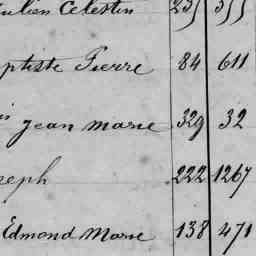 Julien Celestin 235 355
ptiste Pierre 84 611
is Jean Marie 329 32
seph 222 1267
Edmond Marie 138 471